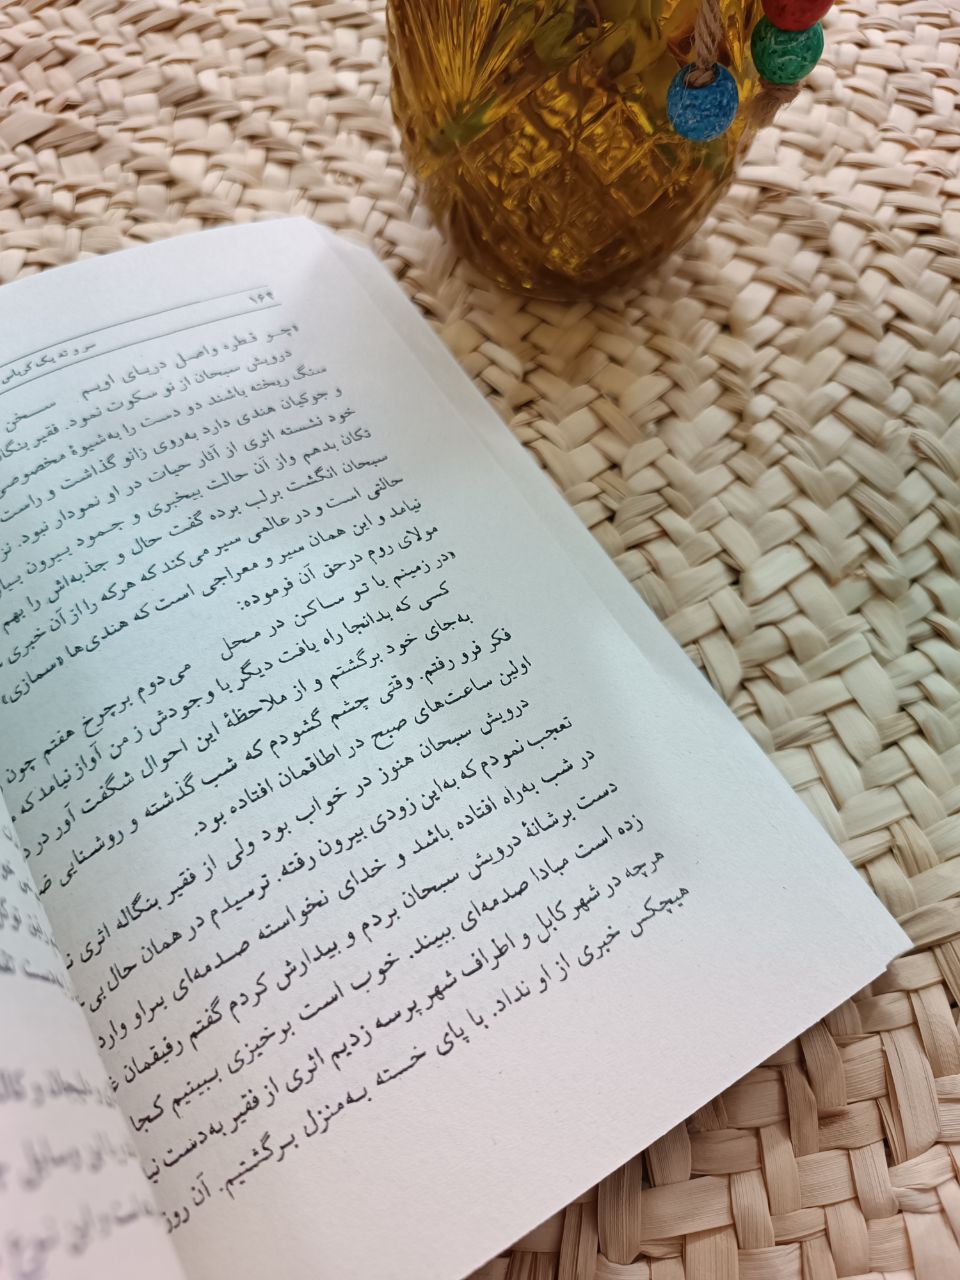 ۱۶۴
سر و ته یک کرباس
«چو قطره واصل دریای اویم سخن
درویش سبحان از نو سکوت نمود. فقیر
سنگ ریخته باشند دو دست را به‌شیوهٔ مخصوصی
و جوکیان هندی دارد به‌روی زانو گذاشت و راست
خود نشسته اثری از آثار حیات در او نمودار نبود.
تکان بدهم و از آن حالت بیخبری و جمود بیرون
سبحان انگشت برلب برده گفت حال و جذبه‌اش را بهم
حالتی است و در عالمی سیر می‌کند که هرکه را از آن خبری
نیامد و این همان سیر و معراجی است که هندی‌ها «سمازی»
مولای روم درحق آن فرموده:
«در زمینم با تو ساکن در محل می‌دوم برچرخ هفتم چون
کسی که بدانجا راه یافت دیگر با وجودش ز من آواز نیامد که
به‌جای خود برگشتم و از ملاحظهٔ این احوال شگفت آور در
فکر فرو رفتم. وقتی چشم گشودم که شب گذشته و روشنایی
اولین ساعت‌های صبح در اطاقمان افتاده بود.
درویش سبحان هنوز در خواب بود ولی از فقیر بنگاله اثری
تعجب نمودم که به‌این زودی بیرون رفته. ترسیدم در همان حال بی
در شب به‌راه افتاده باشد و خدای نخواسته صدمه‌ای براو وارد
دست برشانهٔ درویش سبحان بردم و بیدارش کردم گفتم رفیقمان
زده است مبادا صدمه‌ای ببیند. خوب است برخیزی ببینیم کجا
هرچه در شهر کابل و اطراف شهر پرسه زدیم اثری از فقیر به‌دست
هیچکس خبری از او نداد. با پای خسته به‌منزل برگشتیم. آن روز